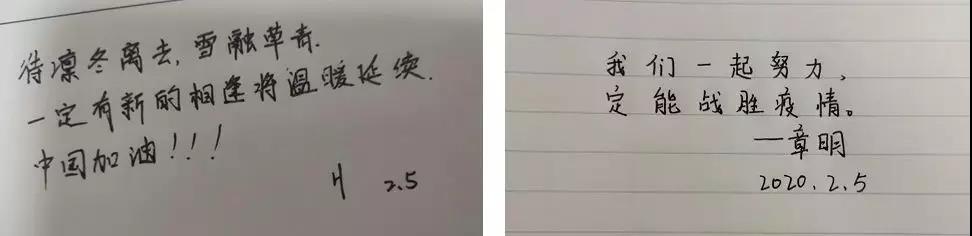 待凛冬离去,雪融草青.
一定有新的相逢将温暖延续.
中国加油!!!
H 2.5
我们一起努力,
定能战胜疫情。
—章明
2020.2.5